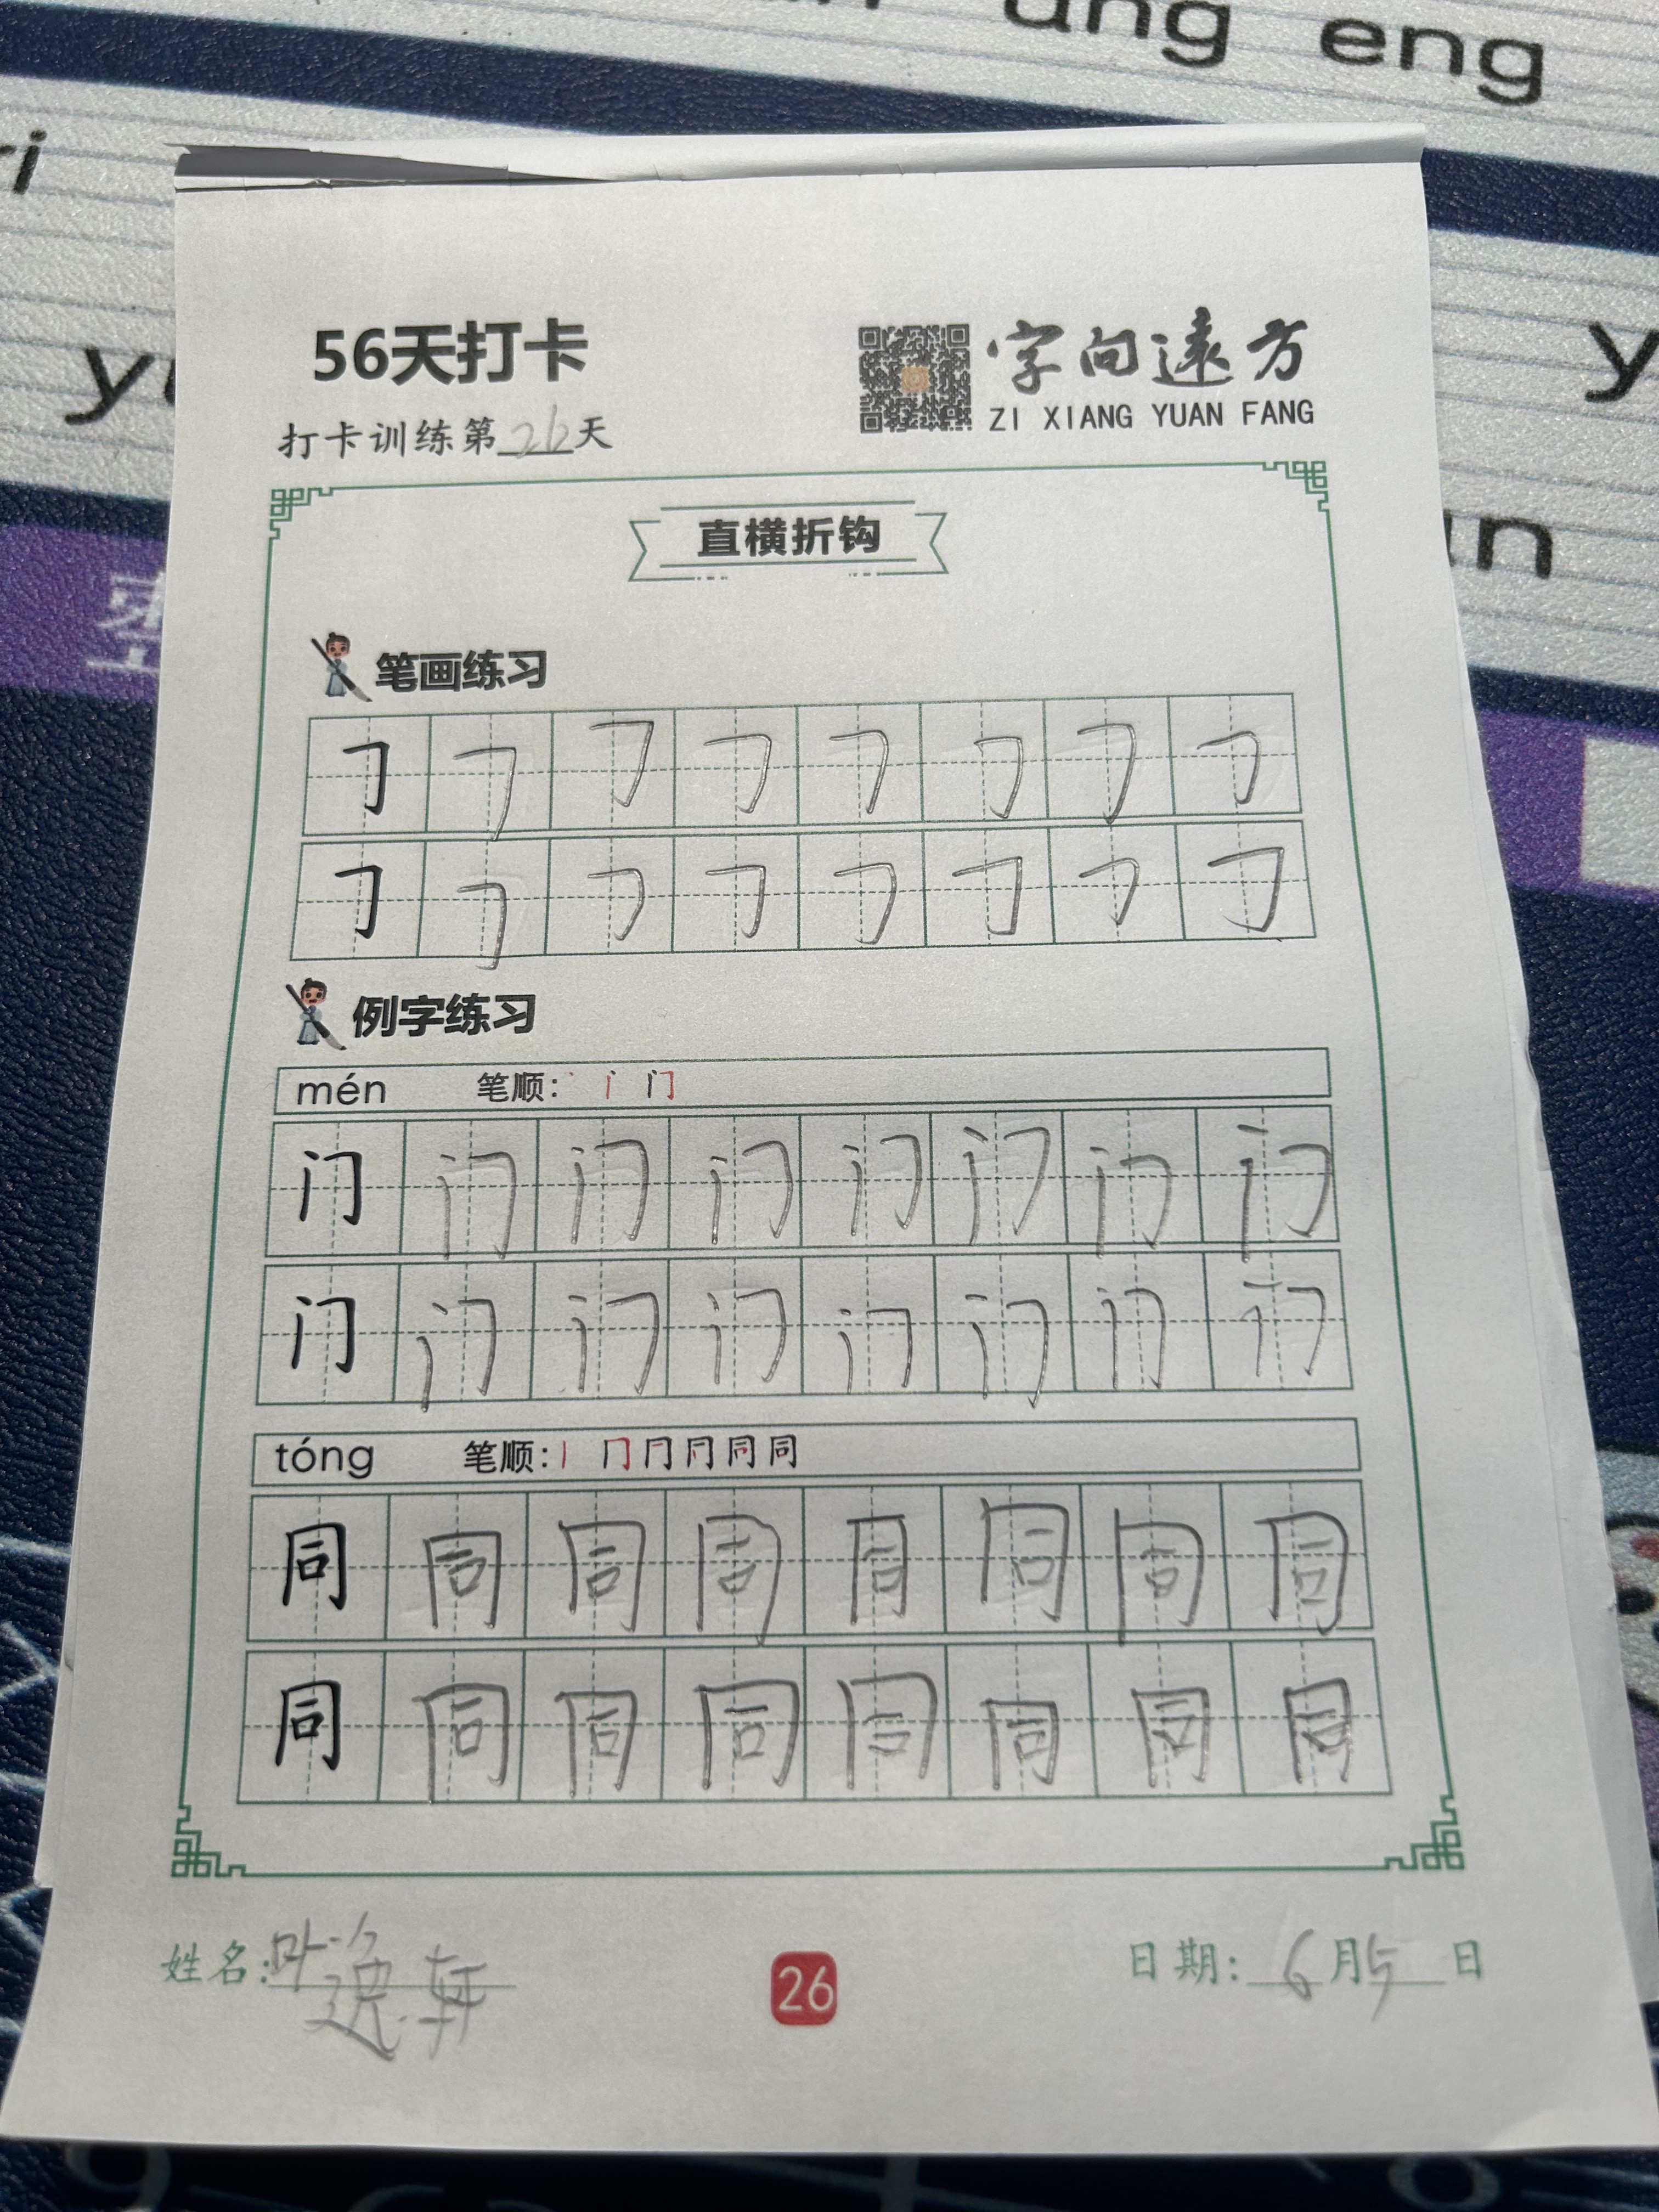 ang eng
yu
y
un
56天打卡
字向遠方
ZI XIANG YUAN FANG
打卡训练第26天
直横折钩
笔画练习
㇆㇆㇆㇆㇆㇆㇆㇆
㇆㇆㇆㇆㇆㇆㇆㇆
例字练习
mén 笔顺: 门
门门门门门门门门
门门门门门门门门
tóng 笔顺: 丨 冂 同 同
同同同同同同同同
同同同同同同同同
姓名: 叶逸轩
26
日期: 6月5日